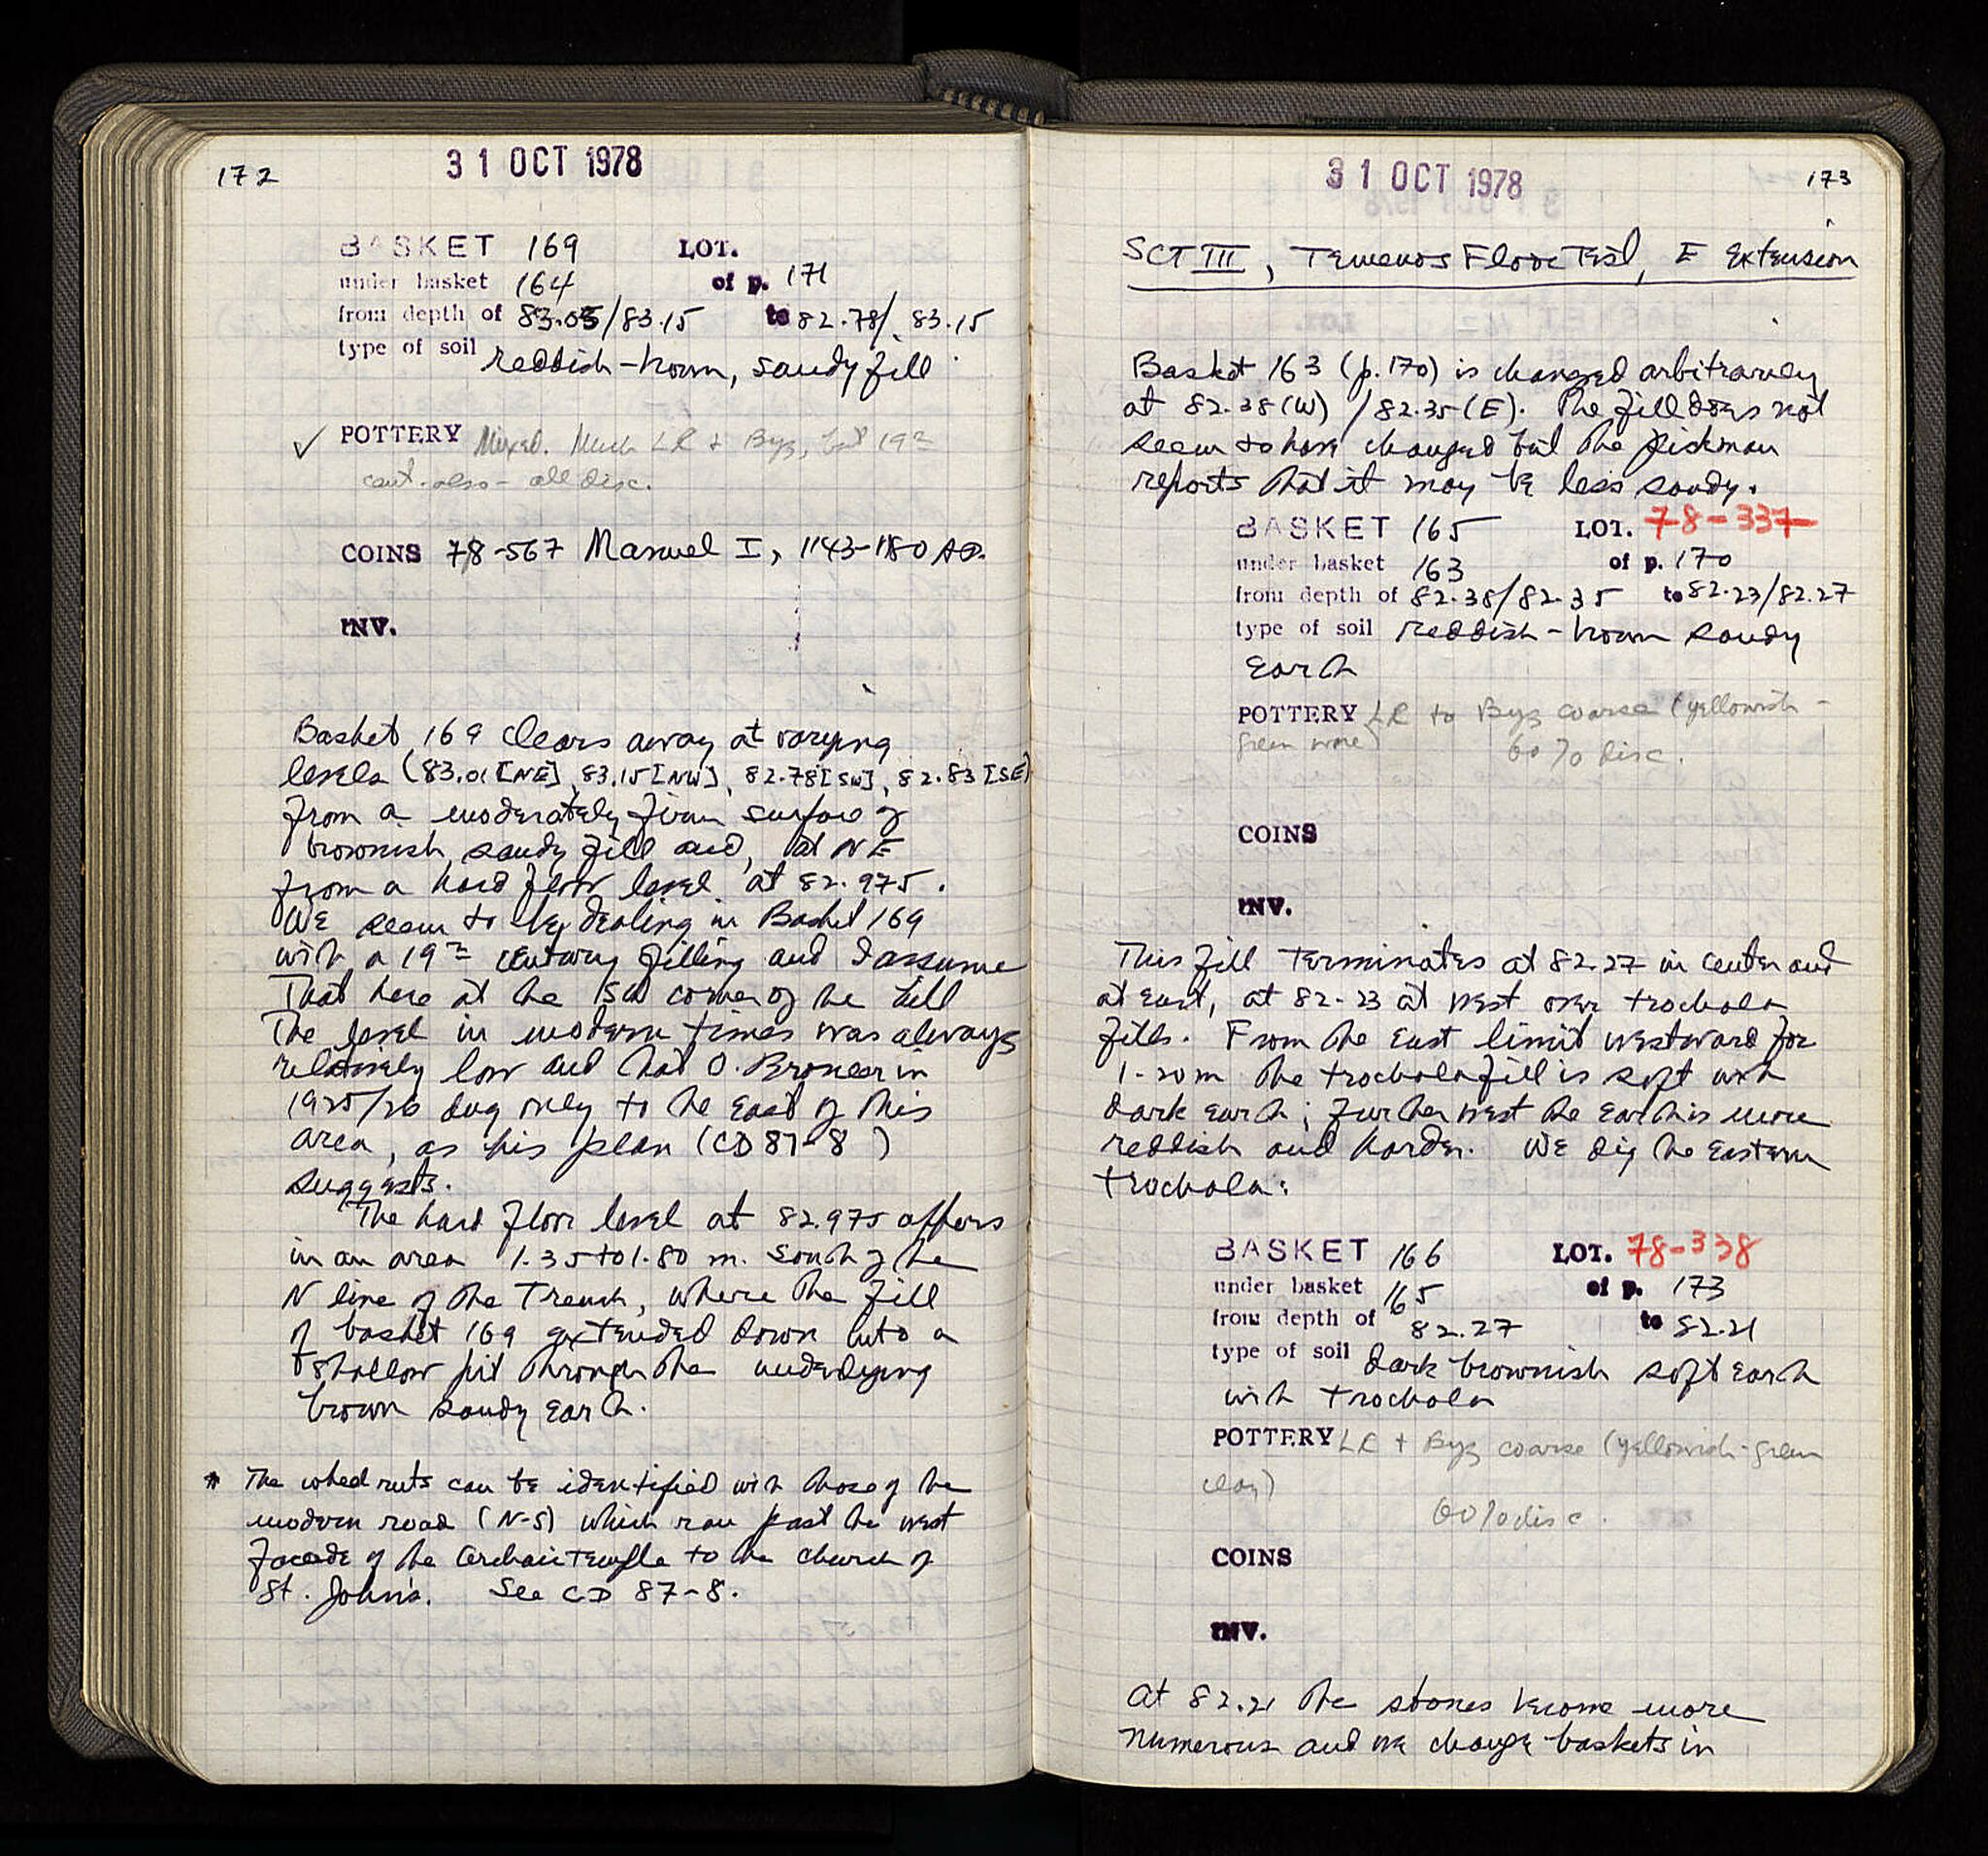 172
31 OCT 1978
BASKET 169 LOT.
under basket 164 of p. 171
from depth of 83.05/83.15 to 82.78/83.15
type of soil reddish-brown, sandy fill
✓ POTTERY Mixed. Much LR + Byz, but 19th
cent. also - all disc.
COINS 78-567 Manuel I, 1143-1180 AD.
INV.
Basket 169 clears away at varying
levels (83.01 [NE], 83.15 [NW], 82.78 [SW], 82.83 [SE])
from a moderately firm surface of
brownish, sandy fill and, at NE
from a hard floor level at 82.975.
We seem to be dealing in Basket 169
with a 19th century filling and I assume
that here at the SW corner of the hill
the level in modern times was always
relatively low and that O. Broneer in
1925/26 dug only to the east of this
area, as his plan (CD 87-8)
suggests.
The hard floor level at 82.975 appears
in an area 1.35 to 1.80 m. south of the
N line of the Trench, where the fill
of basket 169 extended down into a
shallow pit through the underlying
brown sandy earth.
* The wheel ruts can be identified with those of the
modern road (N-S) which ran past the west
facade of the Archaic temple to the church of
St. John's. See CD 87-8.
31 OCT 1978
173
SCT III, Temenos Floor Test, E Extension
Basket 163 (p. 170) is changed arbitrarily
at 82.38 (W) / 82.35 (E). The fill does not
seem to have changed but the pickman
reports that it may be less sandy.
BASKET 165 LOT. 78-337
under basket 163 of p. 170
from depth of 82.38/82.35 to 82.23/82.27
type of soil reddish-brown sandy
earth
POTTERY LR to Byz coarse (yellowish-
green ware) 60% disc.
COINS
INV.
This fill terminates at 82.27 in center and
at east, at 82.23 at west over trochala
fills. From the east limit westward for
1.20 m the trochala fill is soft with
dark earth; further west the earth is more
reddish and harder. We dig the eastern
trochala:
BASKET 166 LOT. 78-338
under basket 165 of p. 173
from depth of 82.27 to 82.21
type of soil dark brownish soft earth
with trochala
POTTERY LR + Byz coarse (yellowish-green
clay)
60% disc.
COINS
INV.
At 82.21 the stones become more
numerous and we change baskets in